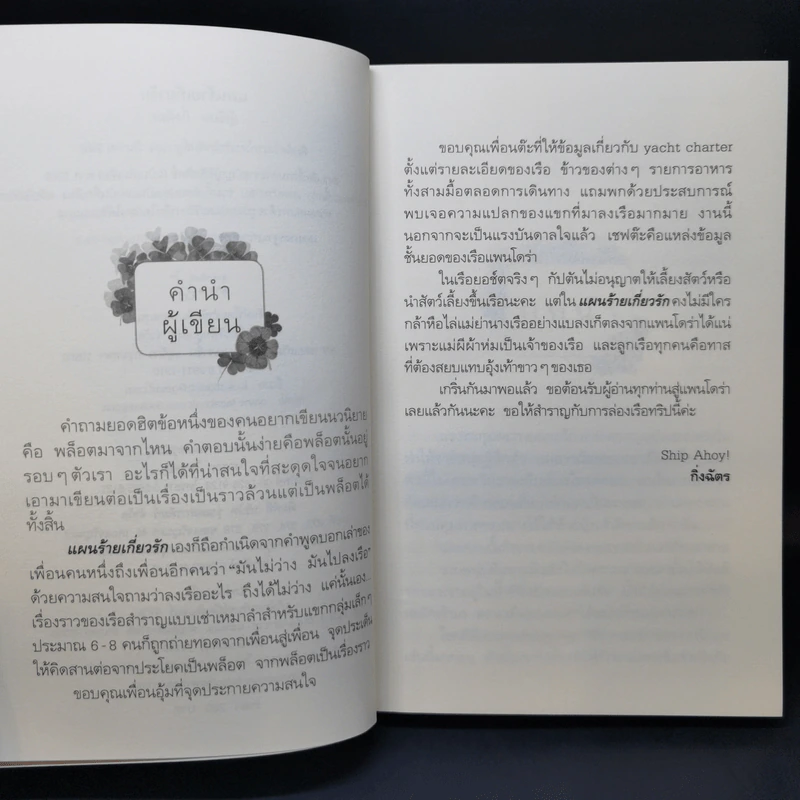 คำนำ
ผู้เขียน
คำถามยอดฮิตข้อหนึ่งของคนอยากเขียนนวนิยาย
คือ พล็อตมาจากไหน คำตอบนั้นง่ายคือพล็อตนั้นอยู่
รอบๆ ตัวเรา อะไรก็ได้ที่น่าสนใจที่สะดุดใจจนอยาก
เอามาเขียนต่อเป็นเรื่องเป็นราวล้วนแต่เป็นพล็อตได้
ทั้งสิ้น
แผนร้ายเกี่ยวรัก เองก็ถือกำเนิดจากคำพูดบอกเล่าของ
เพื่อนคนหนึ่งถึงเพื่อนอีกคนว่า “มันไม่ว่าง มันไปลงเรือ”
ด้วยความสนใจถามว่าลงเรืออะไร ถึงได้ไม่ว่าง แค่นั้นเอง...
เรื่องราวของเรือสำราญแบบเช่าเหมาลำสำหรับแขกกลุ่มเล็กๆ
ประมาณ 6-8 คนก็ถูกถ่ายทอดจากเพื่อนสู่เพื่อน จุดประเด็น
ให้คิดสานต่อจากประโยคเป็นพล็อต จากพล็อตเป็นเรื่องราว
ขอบคุณเพื่อนอุ้มที่จุดประกายความสนใจ
ขอบคุณเพื่อนต๊ะที่ให้ข้อมูลเกี่ยวกับ yacht charter
ตั้งแต่รายละเอียดของเรือ ข้าวของต่างๆ รายการอาหาร
ทั้งสามมื้อตลอดการเดินทาง แถมพกด้วยประสบการณ์
พบเจอความแปลกของแขกที่มาลงเรือมากมาย งานนี้
นอกจากจะเป็นแรงบันดาลใจแล้ว เชฟต๊ะคือแหล่งข้อมูล
ชั้นยอดของเรือแพนโดร่า
ในเรือยอช์ตจริงๆ กัปตันไม่อนุญาตให้เลี้ยงสัตว์หรือ
นำสัตว์เลี้ยงขึ้นเรือนะคะ แต่ใน แผนร้ายเกี่ยวรัก คงไม่มีใคร
กล้าหือไล่แม่ย่านางเรืออย่างแบลงเก็ตลงจากแพนโดร่าได้แน่
เพราะแม่ผีผ้าห่มเป็นเจ้าของเรือ และลูกเรือทุกคนคือทาส
ที่ต้องสยบแทบอุ้งเท้าขาวๆ ของเธอ
เกริ่นกันมาพอแล้ว ขอต้อนรับผู้อ่านทุกท่านสู่แพนโดร่า
เลยแล้วกันนะคะ ขอให้สำราญกับการล่องเรือทริปนี้ค่ะ
Ship Ahoy!
กิ่งฉัตร